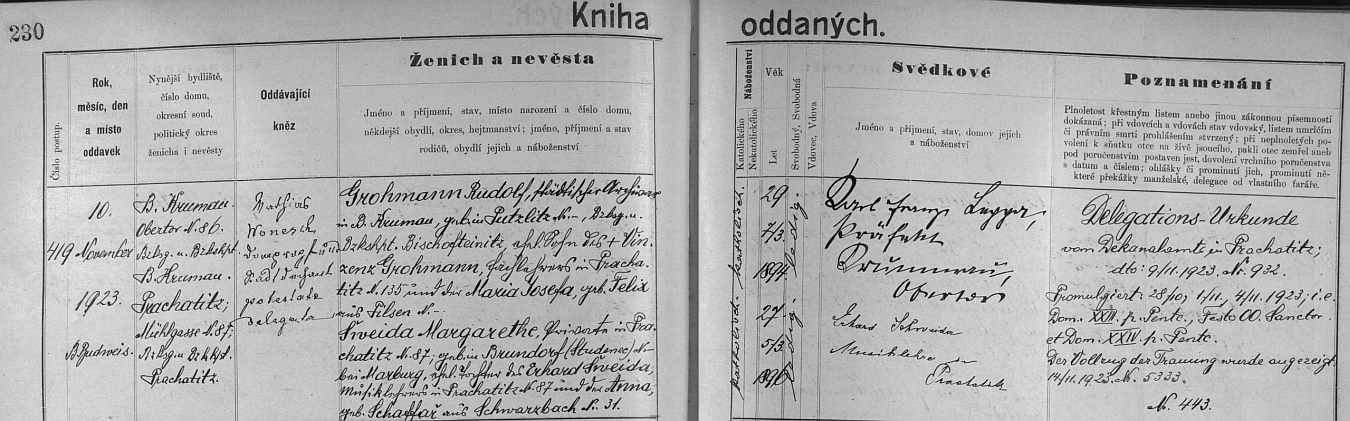 230
Kniha
oddaných.
Číslo postup.
Rok,
měsíc, den
a místo
oddavek
Nynější bydliště,
číslo domu,
okresní soud,
politický okres
ženicha i nevěsty
Oddávající
kněz
Ženich a nevěsta
Jméno a příjmení, stav, místo narození a číslo domu,
někdejší obydlí, okres, hejtmanství; jméno, příjmení a stav
rodičů, obydlí jejich a náboženství
Náboženství
Katolického
Nekatolického
Věk
Let
Svobodný, Svobodná
Vdovec, Vdova
Svědkové
Jméno a příjmení, stav, domov jejich
a náboženství
Poznamenání
Plnoletost křestným listem anebo jinou zákonnou písemností
dokázaná; při vdovcích a vdovách stav vdovský, listem umrlčím
či právním smrti prohlášením stvrzený; při neplnoletých po-
volení k sňatku otce na živě jsoucího, pakli otec zemřel aneb
pod poručenstvím postaven jest, dovolení vrchního poručenstva
s datum a číslem; ohlášky či prominutí jich, prominutí ně-
které překážky manželské, delegace od vlastního faráře.
419
10.
November
1923.
B. Budweis.
B. Krumau.
Obertor N. 86.
Bzbsg. u. Bzkshpt.
B. Krumau.
Prachatitz;
Mühlgasse N. 87;
Prachatitz.
Mathias
Stadtdechant
delegata
Grohmann Rudolf, städtischer Archivar
in B. Krumau, geb. in Putzlitz N. –, Bzbsg. u.
Bzkshpt. Bischofteinitz, ehel. Sohn des † Vin-
zenz Grohmann, Fachlehrers in Pracha-
titz N. 135 und der Maria Josefa, geb. Felix
aus Pilsen N. –.
Sweida Margarethe, Private in Pra-
chatitz N. 87, geb. in Brundorf (Studenec) N. –
bei Marburg, ehel. Tochter des Erhard Sweida,
Musiklehrers in Prachatitz N. 87 und der Anna,
geb. Schaffař aus Schwarzbach N. 31.
katholisch.
29
7/3
1894
ledig
katholisch.
27
5/3
1896
ledig
Karl Franz
Präfekt
Krummau,
Obertor
Erhard Schweida
Musiklehrer
Prachatitz
Delegations-Urkunde
vom Dekanalamte in Prachatitz;
dto: 9/11. 1923, N. 932.
Promulgiert: 28/10, 1/11, 4/11. 1923; i. e.
Dom. XXIII. p. Pente., Festo OO. Sanctor.
et Dom. XXIV. p. Pente.
Der Vollzug der Trauung wurde angezeigt
14/11. 1923. N. 5333.
N. 443.